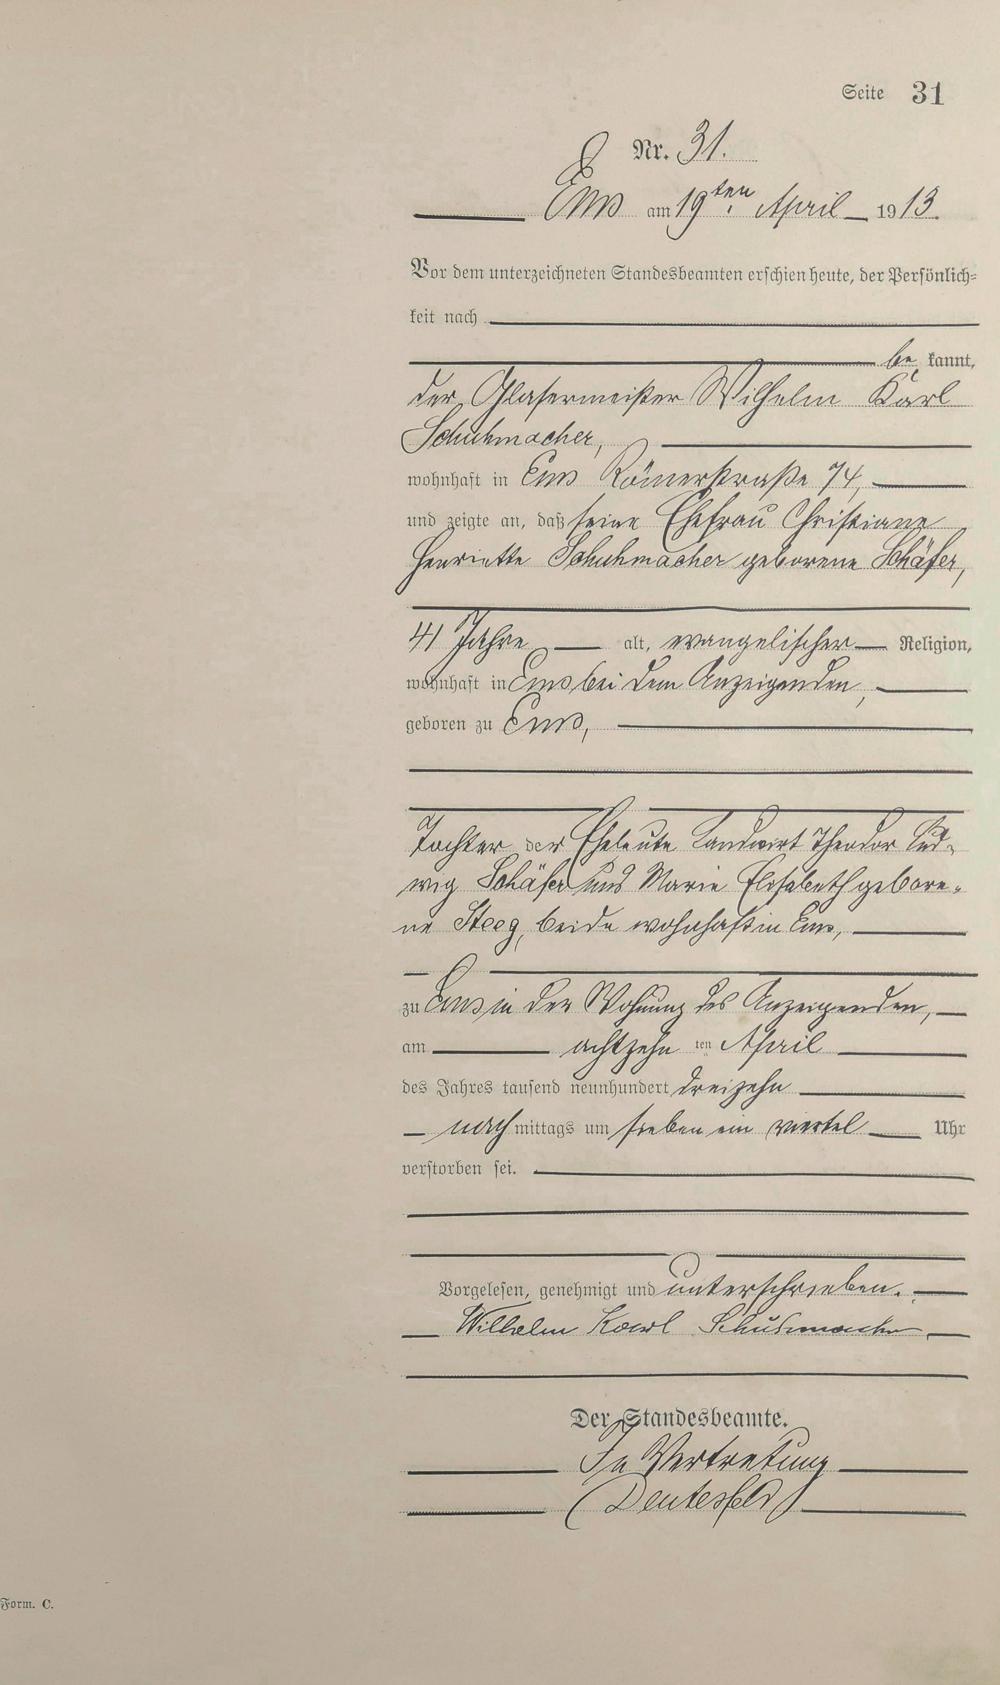 Seite 31
Nr. 31.
Ems am 19ten April 1913.
Vor dem unterzeichneten Standesbeamten erschien heute, der Persönlich=
keit nach
be kannt,
der Glasermeister Wilhelm Karl
Schuhmacher,
wohnhaft in Ems Römerstraße 74,
und zeigte an, daß seine Ehefrau Christiane
Henriette Schuhmacher geborene Schäfer,
41 Jahre alt, evangelischer Religion,
wohnhaft in Ems bei dem Anzeigenden,
geboren zu Ems,
Tochter der Eheleute Landwirt Theodor Lud-
wig Schäfer und Marie Elisabeth gebore-
ne Steeg, beide wohnhaft in Ems,
zu Ems in der Wohnung des Anzeigenden,
am achtzehn ten April
des Jahres tausend neunhundert dreizehn
nach mittags um sieben ein viertel Uhr
verstorben sei.
Vorgelesen, genehmigt und unterschrieben.
Wilhelm Karl Schuhmacher
Der Standesbeamte.
In Vertretung
(Deutesfeld)
Form. C.